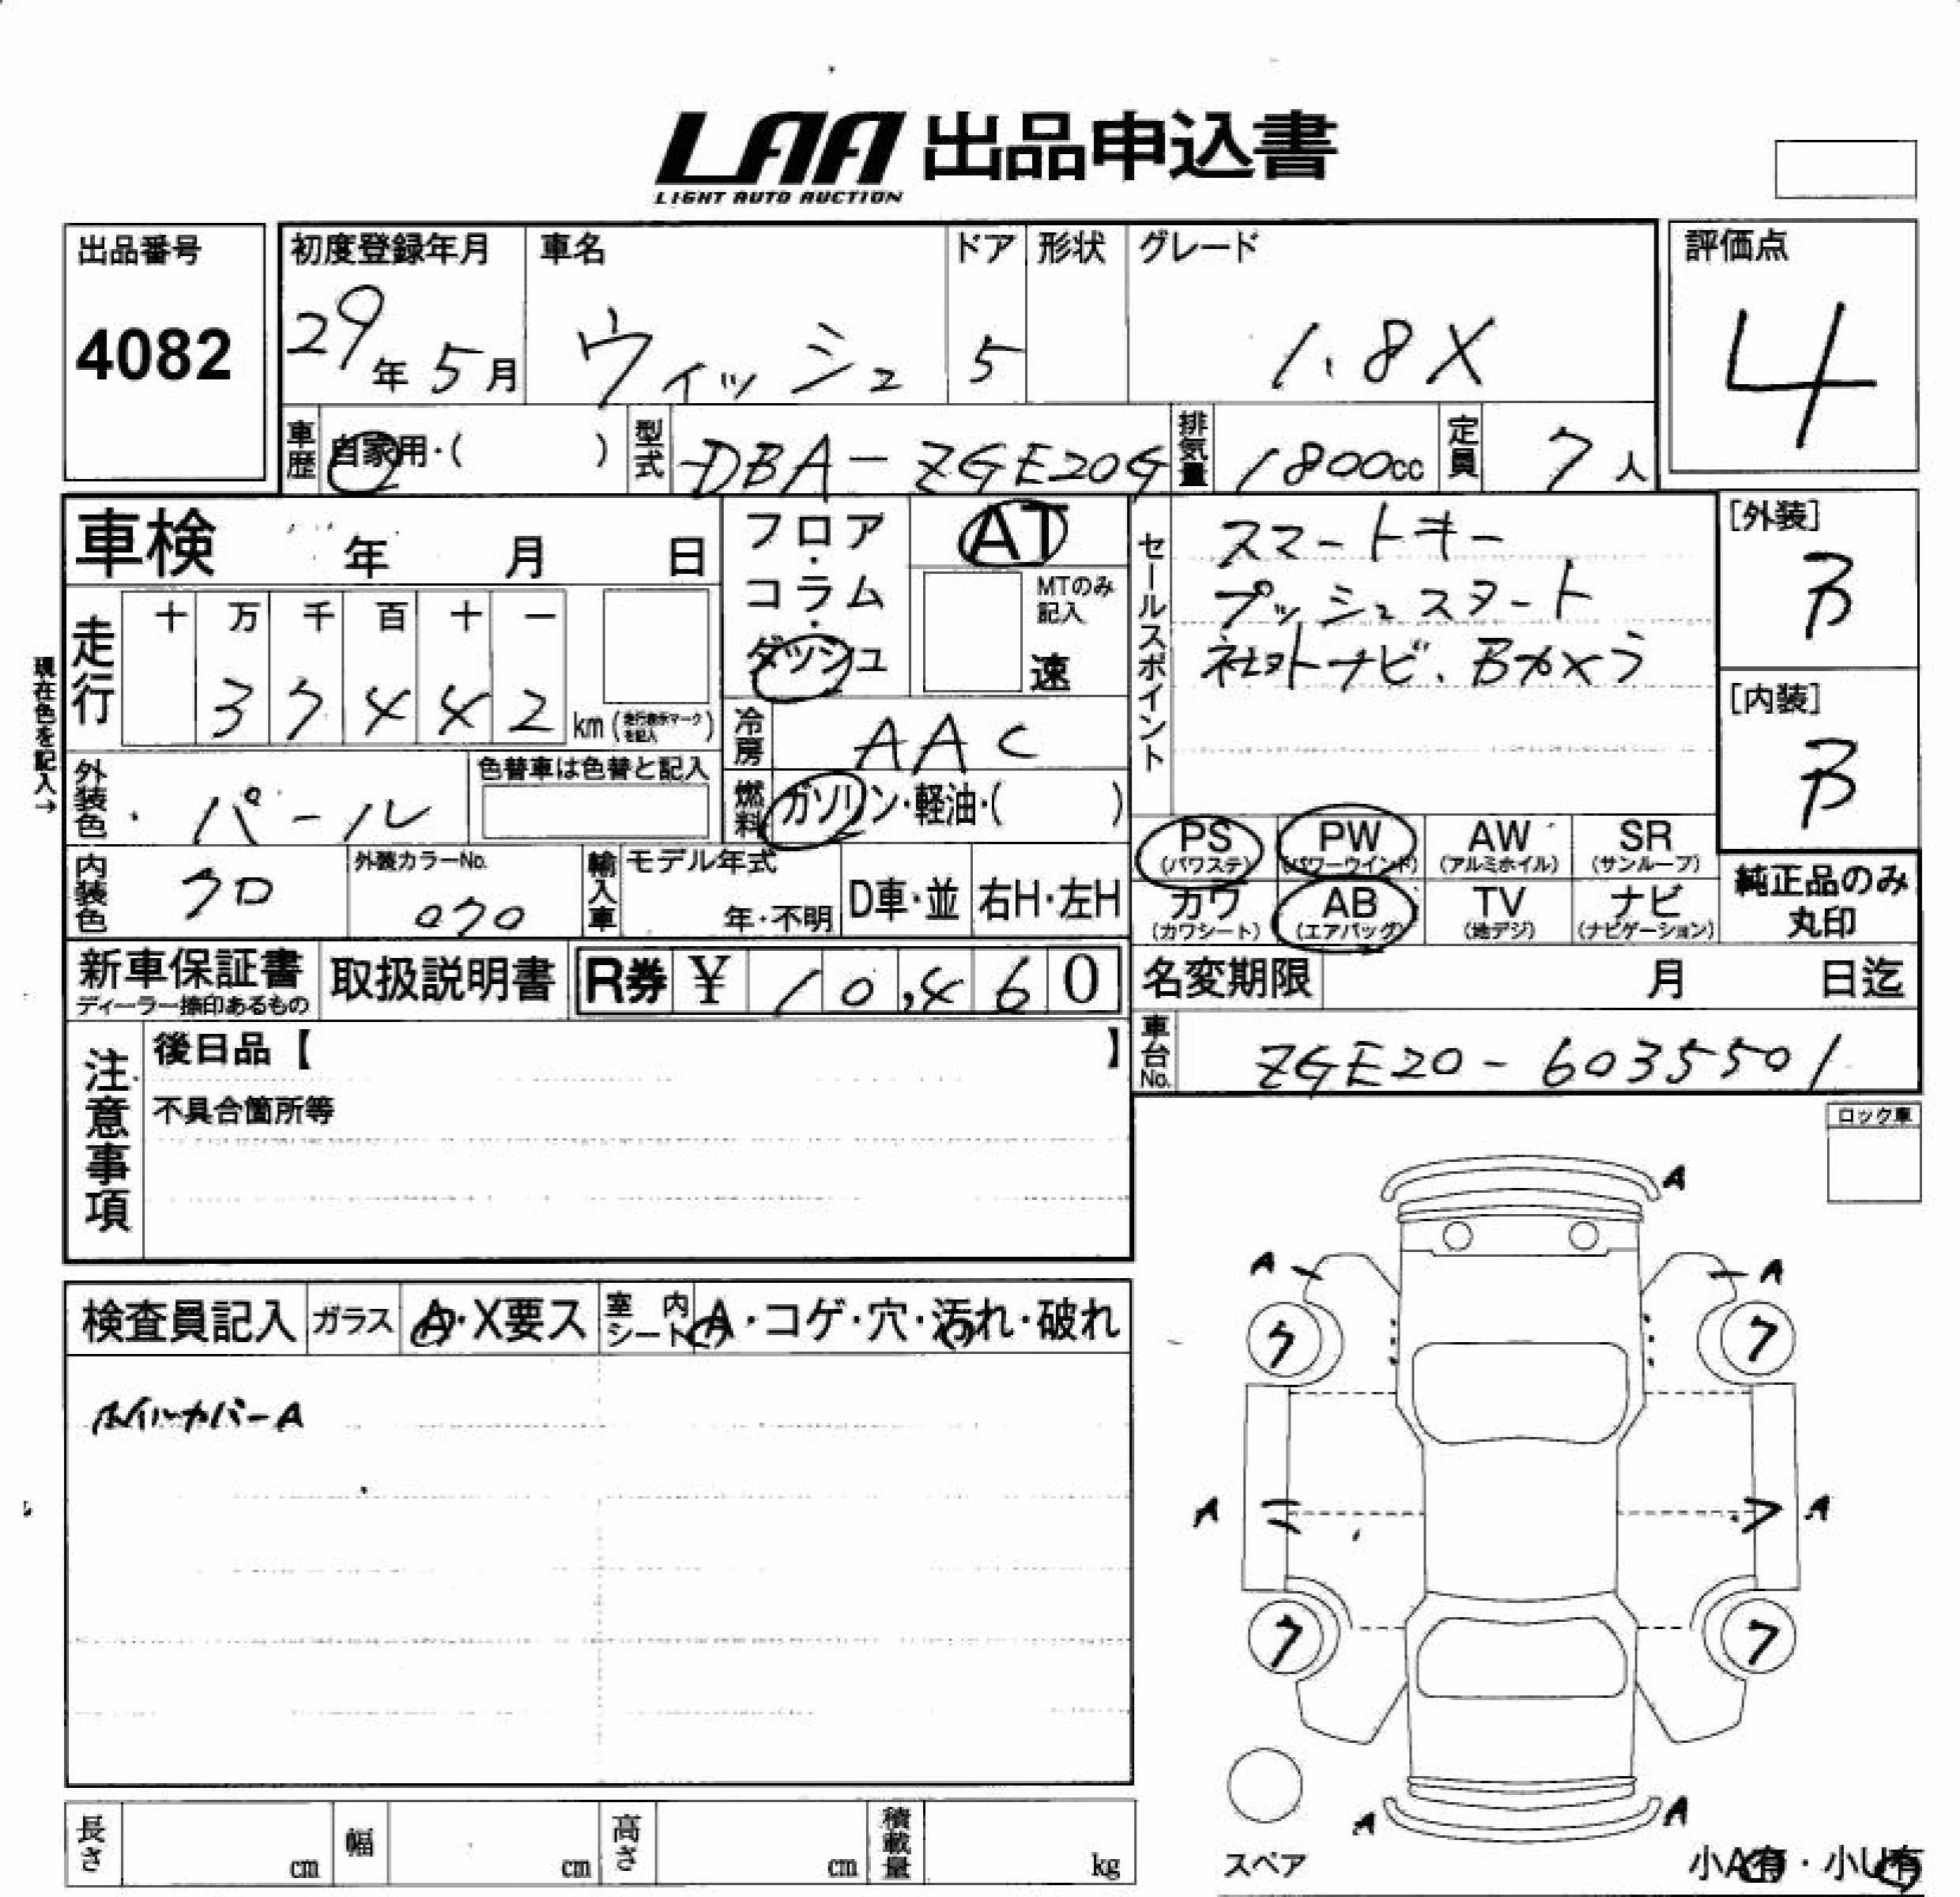 LAA 出品申込書
LIGHT AUTO AUCTION
出品番号
4082
初度登録年月
29年 5月
車名
ウィッシュ
ドア
5
形状
グレード
1.8X
評価点
4
車歴
自家用・( )
型式
DBA-ZGE20G
排気量
1800cc
定員
7人
車検 年 月 日
フロア・コラム・ダッシュ
AT
MTのみ記入
速
セールスポイント
スマートキー
プッシュスタート
社外ナビ、Bカメラ
[外装]
B
[内装]
B
現在色を記入→
走行
十 万 千 百 十 一
3 7 4 4 2 km (走行表示マークを記入)
冷房
AAC
外装色
パール
色替車は色替と記入
燃料
ガソリン・軽油・( )
PS (パワステ)
PW (パワーウインド)
AW (アルミホイル)
SR (サンルーフ)
カワ (カワシート)
AB (エアバッグ)
TV (地デジ)
ナビ (ナビゲーション)
純正品のみ丸印
内装色
クロ
外装カラーNo.
070
輸入車
モデル年式
年・不明
D車・並
右H・左H
新車保証書
ディーラー捺印あるもの
取扱説明書
R券 ¥ 10,460
名変期限 月 日迄
車台No.
ZGE20-6035501
注意事項
後日品【 】
不具合箇所等
ロック車
検査員記入
ガラス
A・X要ス
室内シート
A・コゲ・穴・汚れ・破れ
ホイルカバーA
A
A A
7 7
A A
7 7
A A
スペア
小A有・小U有
長さ cm
幅 cm
高さ cm
積載量 kg